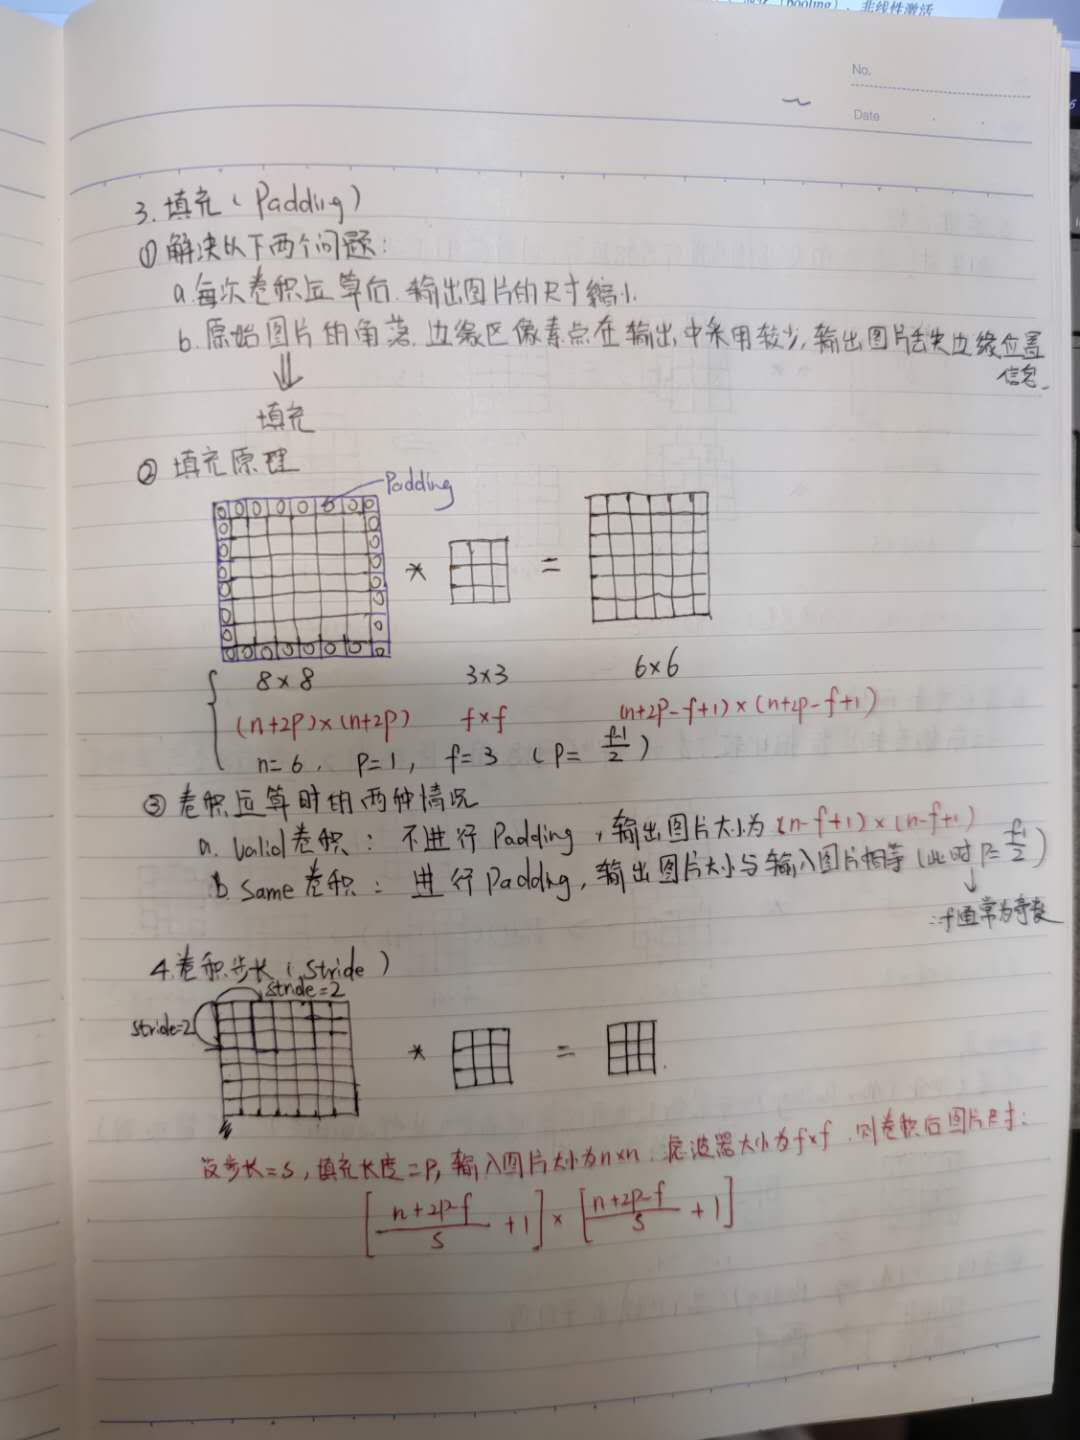 (pooling)、非线性激活
No.
Date
3. 填充 (Padding)
① 解决以下两个问题:
a. 每次卷积运算后, 输出图片的尺寸缩小.
b. 原始图片的角落、边缘区像素点在输出中采用较少, 输出图片丢失边缘位置
信息.
⇓
填充
② 填充原理
Padding
* =
8×8 3×3 6×6
(n+2p)×(n+2p) f×f (n+2p-f+1)×(n+2p-f+1)
n=6, p=1, f=3 (p= \frac{f-1}{2})
③ 卷积运算时的两种情况
a. Valid卷积: 不进行Padding, 输出图片大小为(n-f+1)×(n-f+1)
b. Same卷积: 进行Padding, 输出图片大小与输入图片相等 (此时 p= \frac{f-1}{2})
↓
∴f通常为奇数
4. 卷积步长 (Stride)
stride=2
stride=2
* =
设步长=s, 填充长度=p, 输入图片大小为n×n, 滤波器大小为f×f, 则卷积后图片尺寸:
[\frac{n+2p-f}{s} +1]×[\frac{n+2p-f}{s} +1]